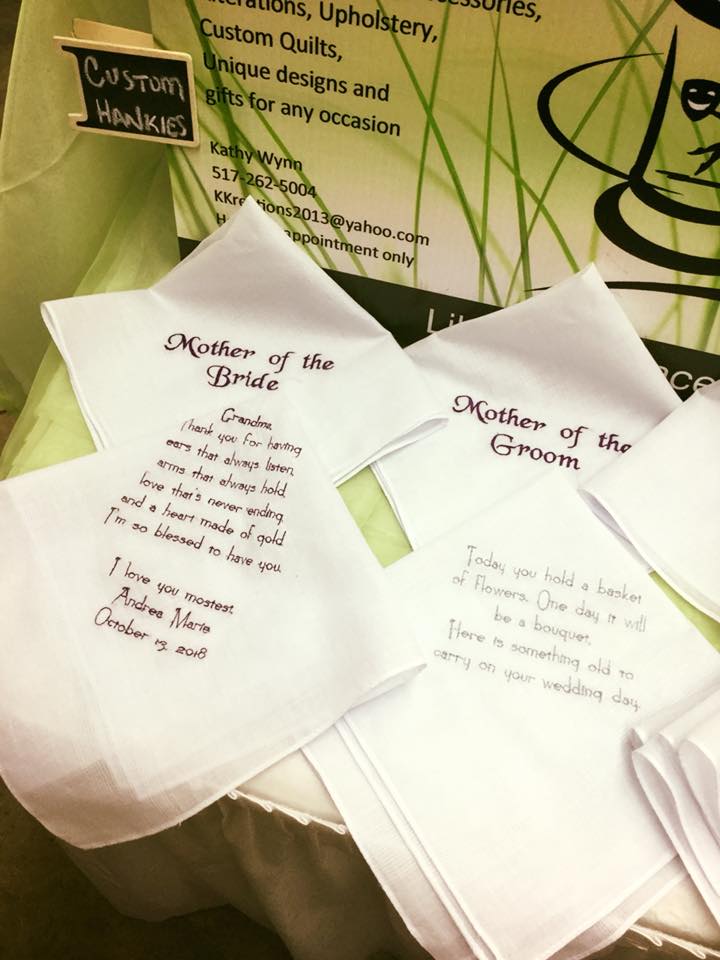 Alterations, Upholstery,
Custom Quilts,
Unique designs and
gifts for any occasion
CUSTOM
HANKIES
Kathy Wynn
517-262-5004
appointment only
Mother of the
Bride
Mother of the
Groom
Grandma,
Thank you for having
ears that always listen,
arms that always hold,
love that's never ending,
and a heart made of gold.
I'm so blessed to have you.
I love you mostest,
Andrea Marie
October 13, 2018
Today you hold a basket
of flowers. One day it will
be a bouquet.
Here is something old to
carry on your wedding day.